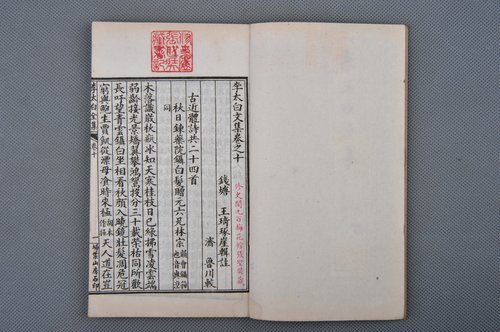 李太白文集卷之十
錢塘 王琦琢崖輯註
濟 魯川較
古近體詩共二十四首
秋日鍊藥院鑷白髮贈元六兄林宗
木落識歲秋瓶冰知天寒桂枝日已綠拂雪凌雲端
弱齡接光景矯翼攀鴻鸞投分三十載榮枯同所歡
長吁望青雲鑷白坐相看秋顏入曉鏡壯髮凋危冠
窮與鮑生賈飢從漂母飡時來極天人道在豈
李太白全集 卷十 一 掃葉山房石印